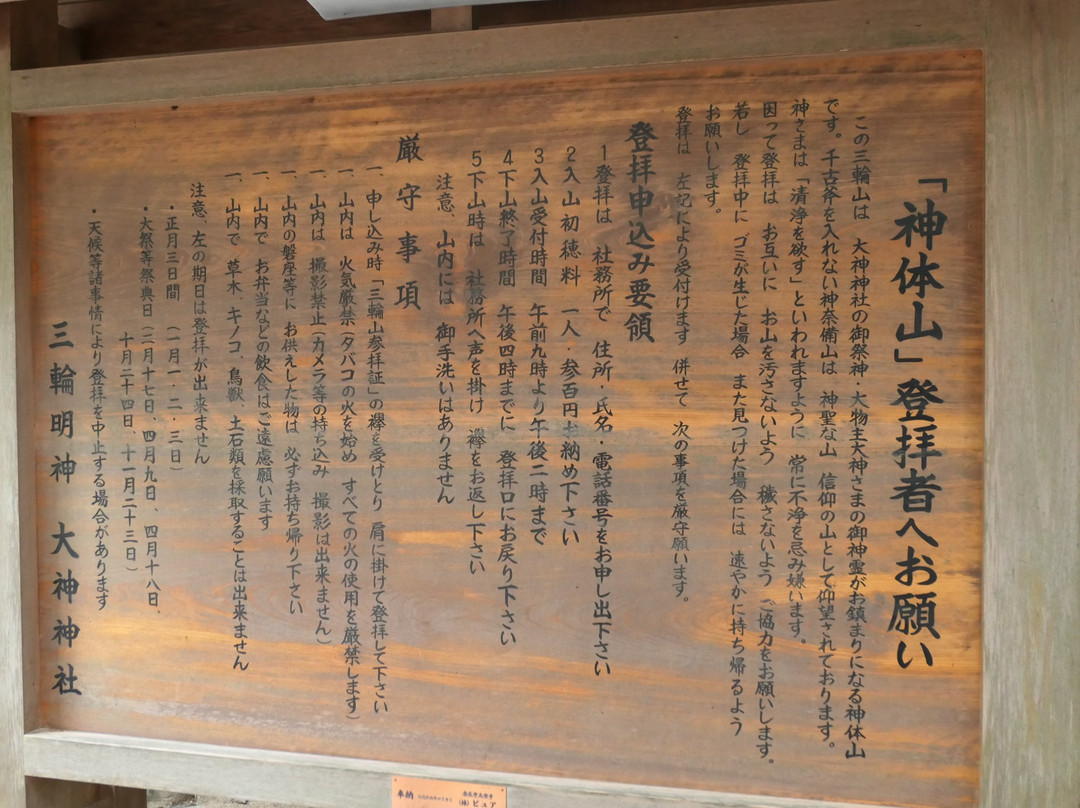 「神体山」登拝者へお願い
この三輪山は 大神神社の御祭神・大物主大神さまの御神霊がお鎮まりになる神体山
です。千古斧を入れない神奈備山は 神聖な山 信仰の山として仰望されております。
神さまは「清浄を欲す」といわれますように 常に不浄を忌み嫌います。
因って登拝は お互いに お山を汚さないよう 穢さないよう ご協力をお願いします。
若し 登拝中に ゴミが生じた場合 また見つけた場合には 速やかに持ち帰るよう
お願いします。
登拝は 左記により受付けます 併せて 次の事項を厳守願います。
登拝申込み要領
1登拝は 社務所で 住所・氏名・電話番号をお申し出下さい
2入山初穂料 一人・参百円お納め下さい
3入山受付時間 午前九時より午後二時まで
4下山終了時間 午後四時までに 登拝口にお戻り下さい
5下山時は 社務所へ声を掛け 襷をお返し下さい
注意、山内には 御手洗いはありません
厳守事項
一、申し込み時「三輪山参拝証」の襷を受けとり 肩に掛けて登拝して下さい
一、山内は 火気厳禁(タバコの火を始め すべての火の使用を厳禁します)
一、山内は 撮影禁止(カメラ等の持ち込み 撮影は出来ません)
一、山内の磐座等に お供えした物は 必ずお持ち帰り下さい
一、山内で お弁当などの飲食はご遠慮願います
一、山内で 草木、キノコ、鳥獣、土石類を採取することは出来ません
注意、左の期日は登拝が出来ません
・正月三日間 (一月一・二・三日)
・大祭等祭典日(二月十七日、四月九日、四月十八日、
十月二十四日、十一月二十三日)
・天候等諸事情により登拝を中止する場合があります
三輪明神 大神神社
奉納
(株)ピュア